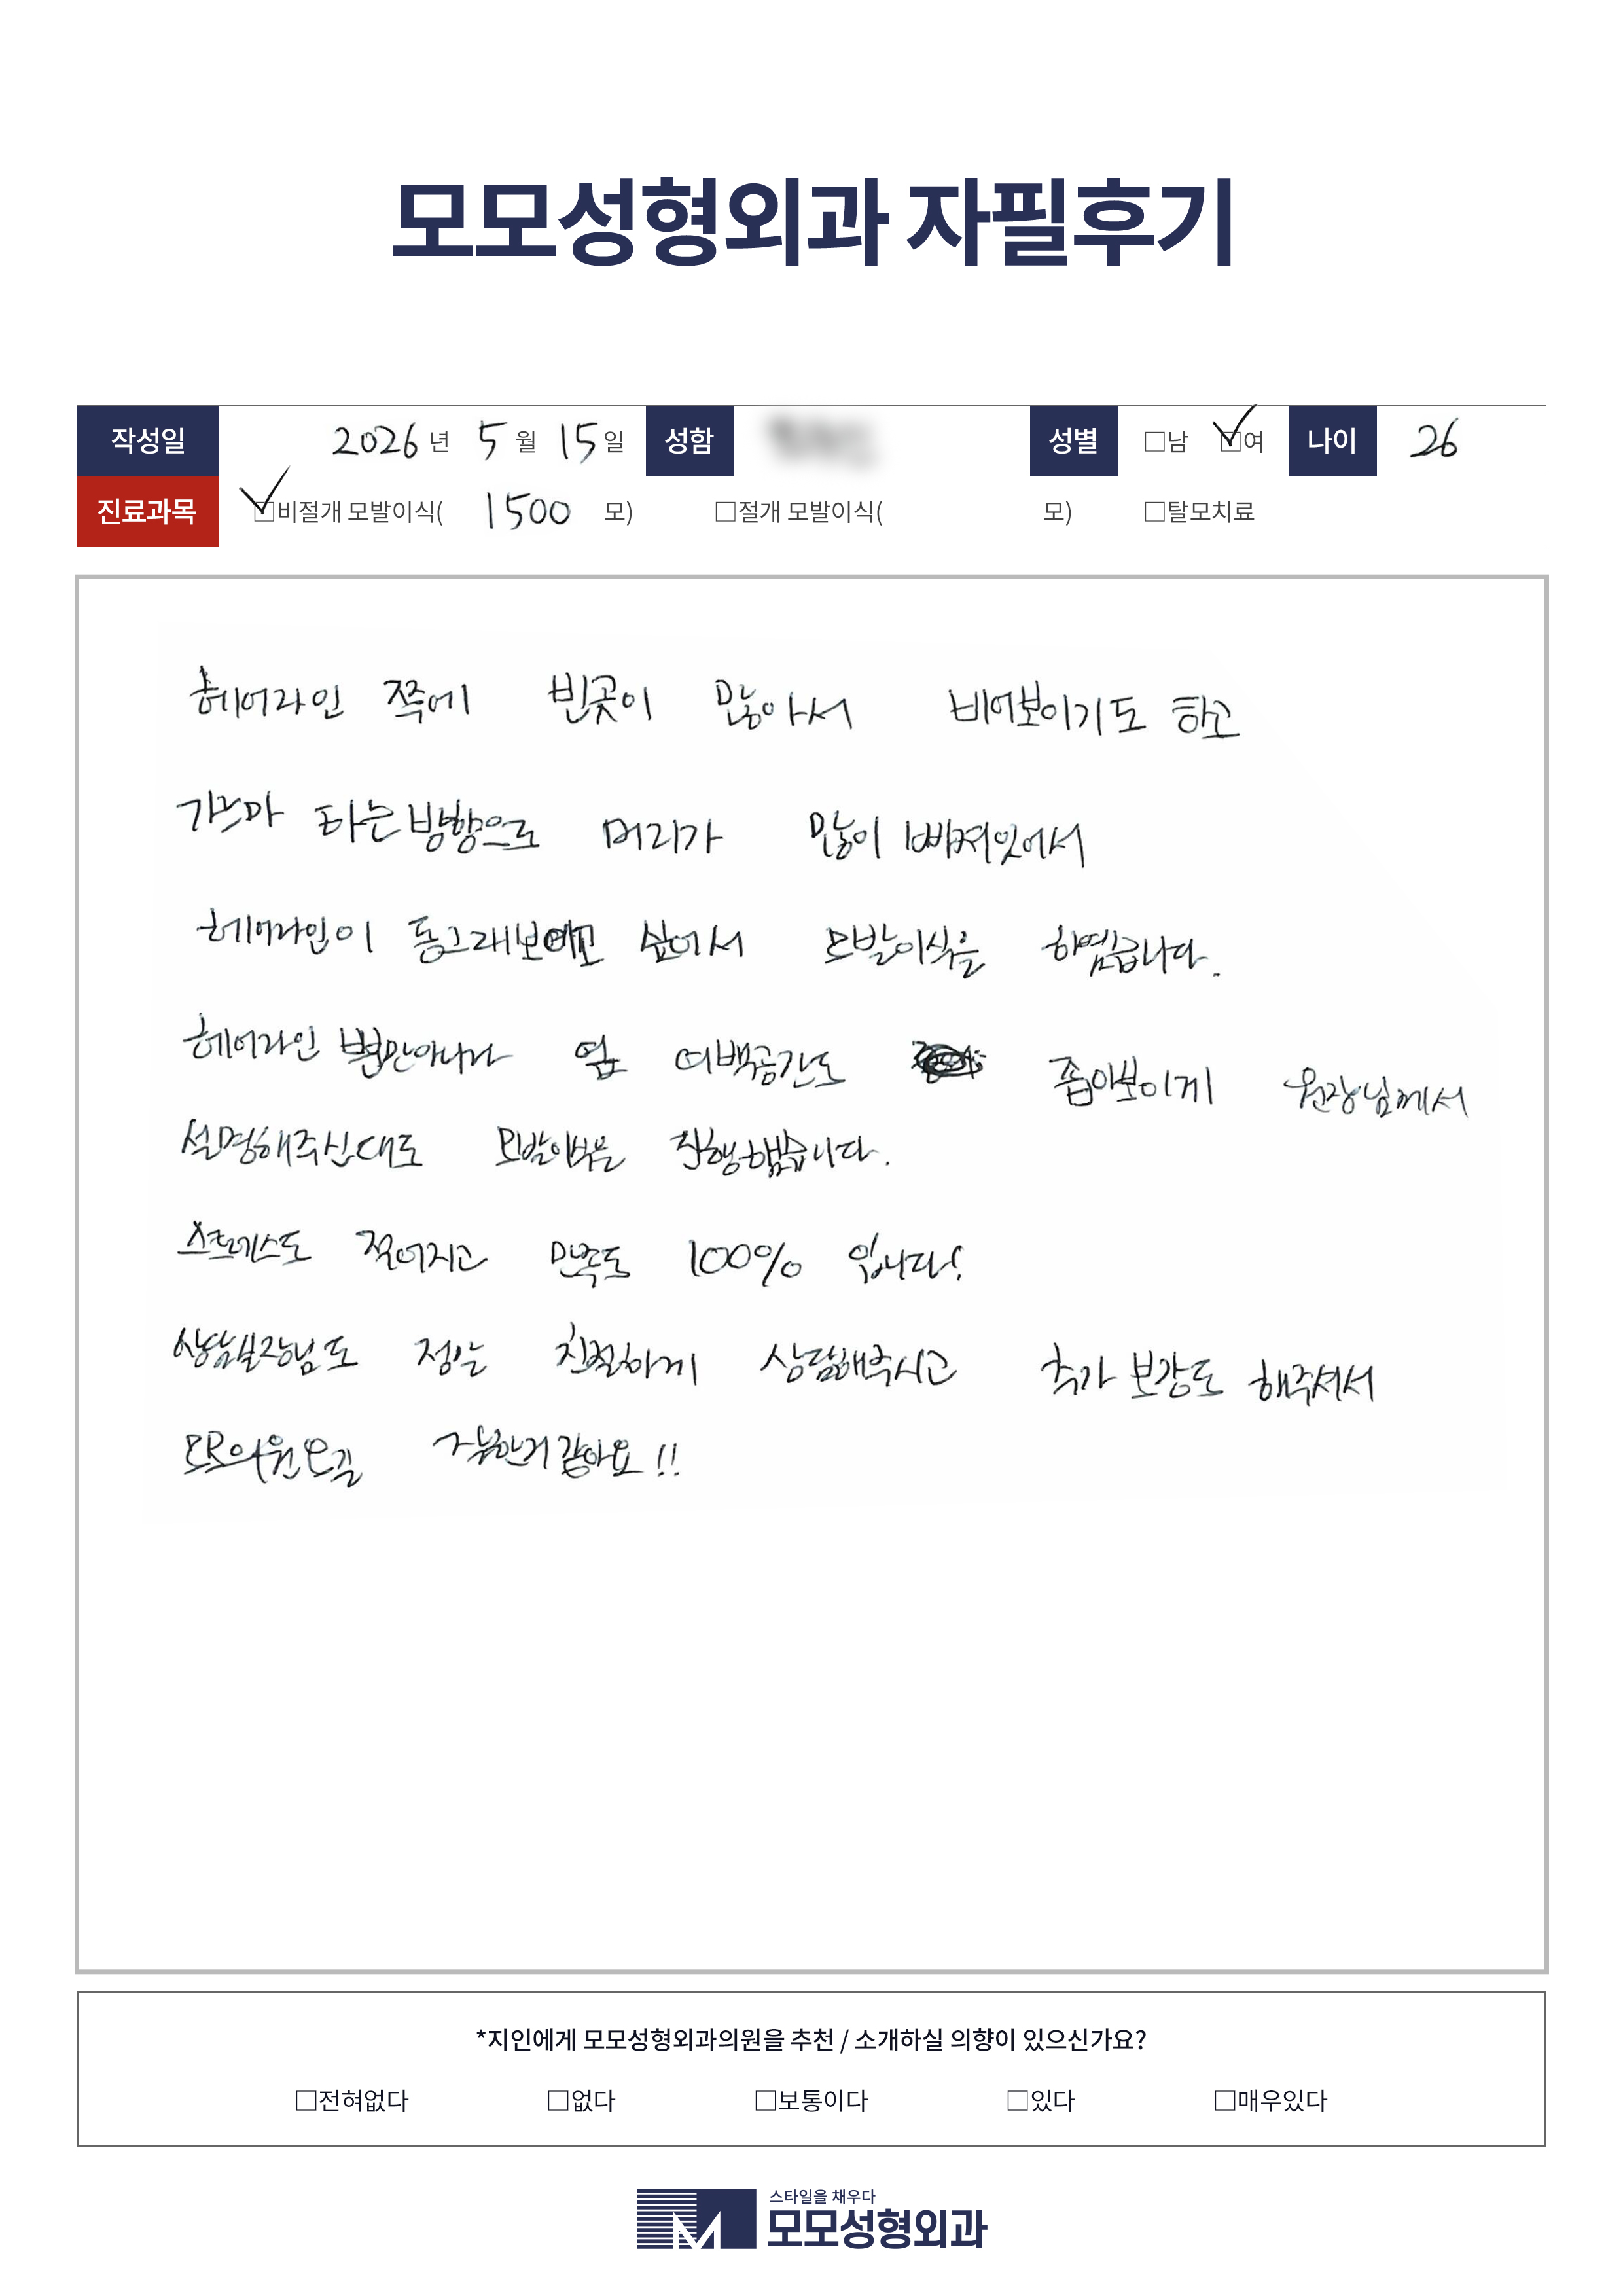 모모성형외과 자필후기
작성일 2026 년 5 월 15 일 성함 성별 □남 ☑여 나이 26
진료과목 ☑비절개 모발이식( 1500 모) □절개 모발이식( 모) □탈모치료
헤어라인 쪽에 빈곳이 많아서 비어보이기도 하고
가르마 타는방향으로 머리가 많이 빠져있어서
헤어라인이 동그래보이고 싶어서 모발이식을 하였습니다.
헤어라인 뿐만아니라 옆 여백공간도 좁아보이게 원장님께서
설명해주신대로 모발이식을 진행했습니다.
스트레스도 적어지고 만족도 100% 입니다!
상담실장님도 정말 친절하게 상담해주시고 추가 보강도 해주셔서
모모의원오길 한거같아요!!
*지인에게 모모성형외과의원을 추천 / 소개하실 의향이 있으신가요?
□전혀없다 □없다 □보통이다 □있다 □매우있다
스타일을 채우다
모모성형외과